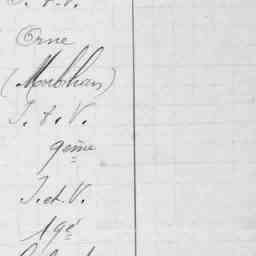 Orne
(Morbihan)
I. & V.
9ème
I. et V.
19è